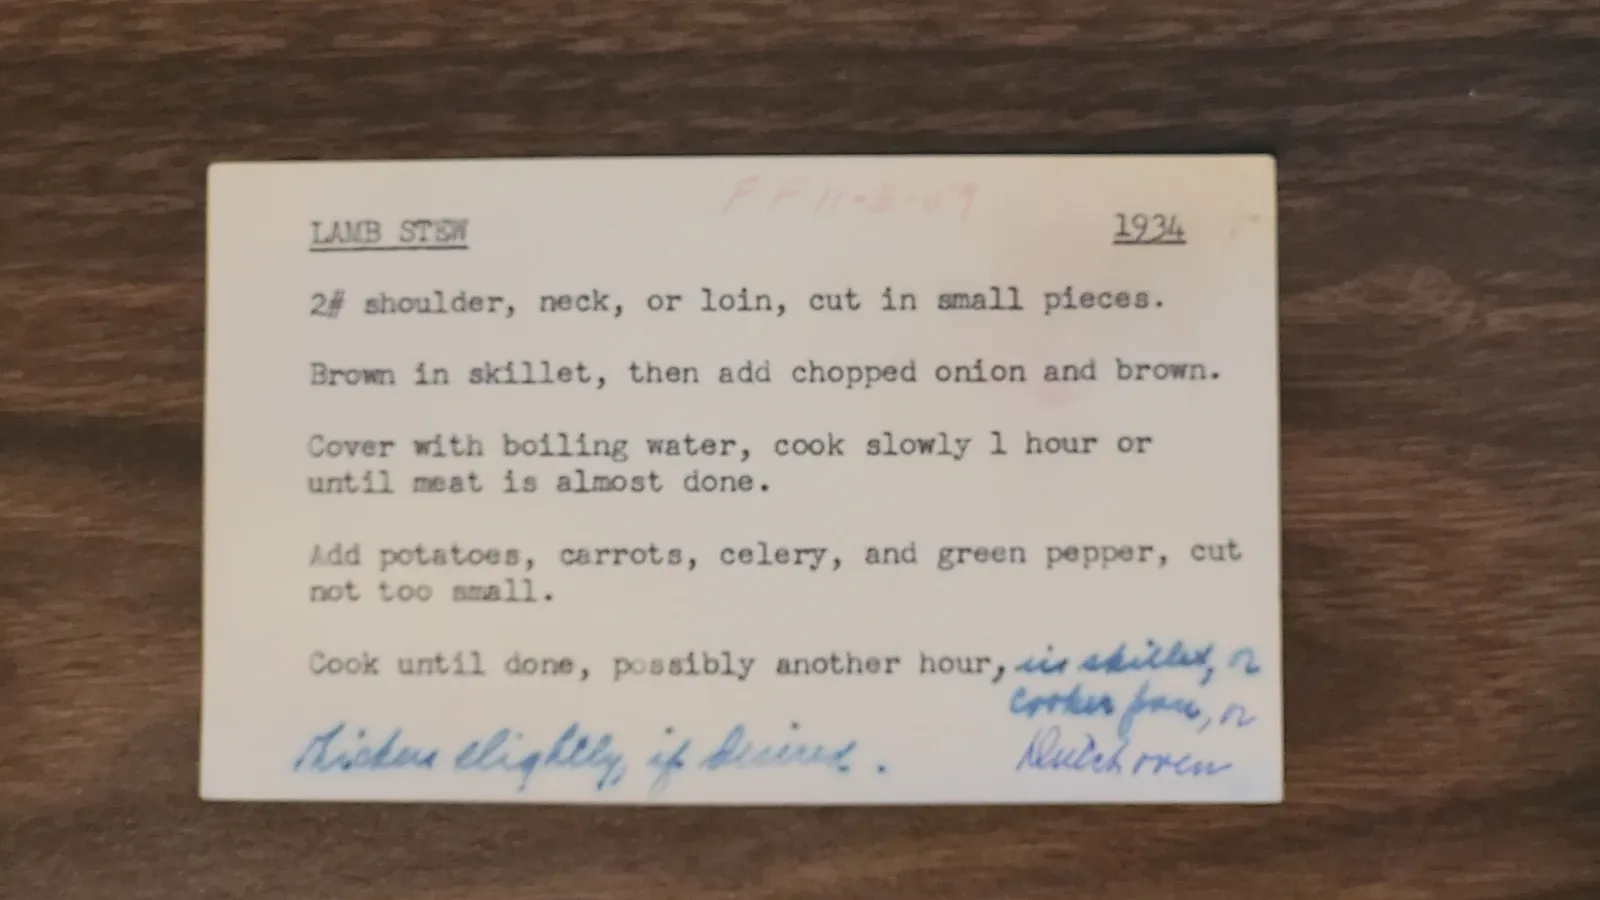 FF 11-3-59
LAMB STEW 1934
2# shoulder, neck, or loin, cut in small pieces.
Brown in skillet, then add chopped onion and brown.
Cover with boiling water, cook slowly 1 hour or
until meat is almost done.
Add potatoes, carrots, celery, and green pepper, cut
not too small.
Cook until done, possibly another hour, in skillet, or
cooker pan, or
Dutch oven
thicken slightly, if desired.